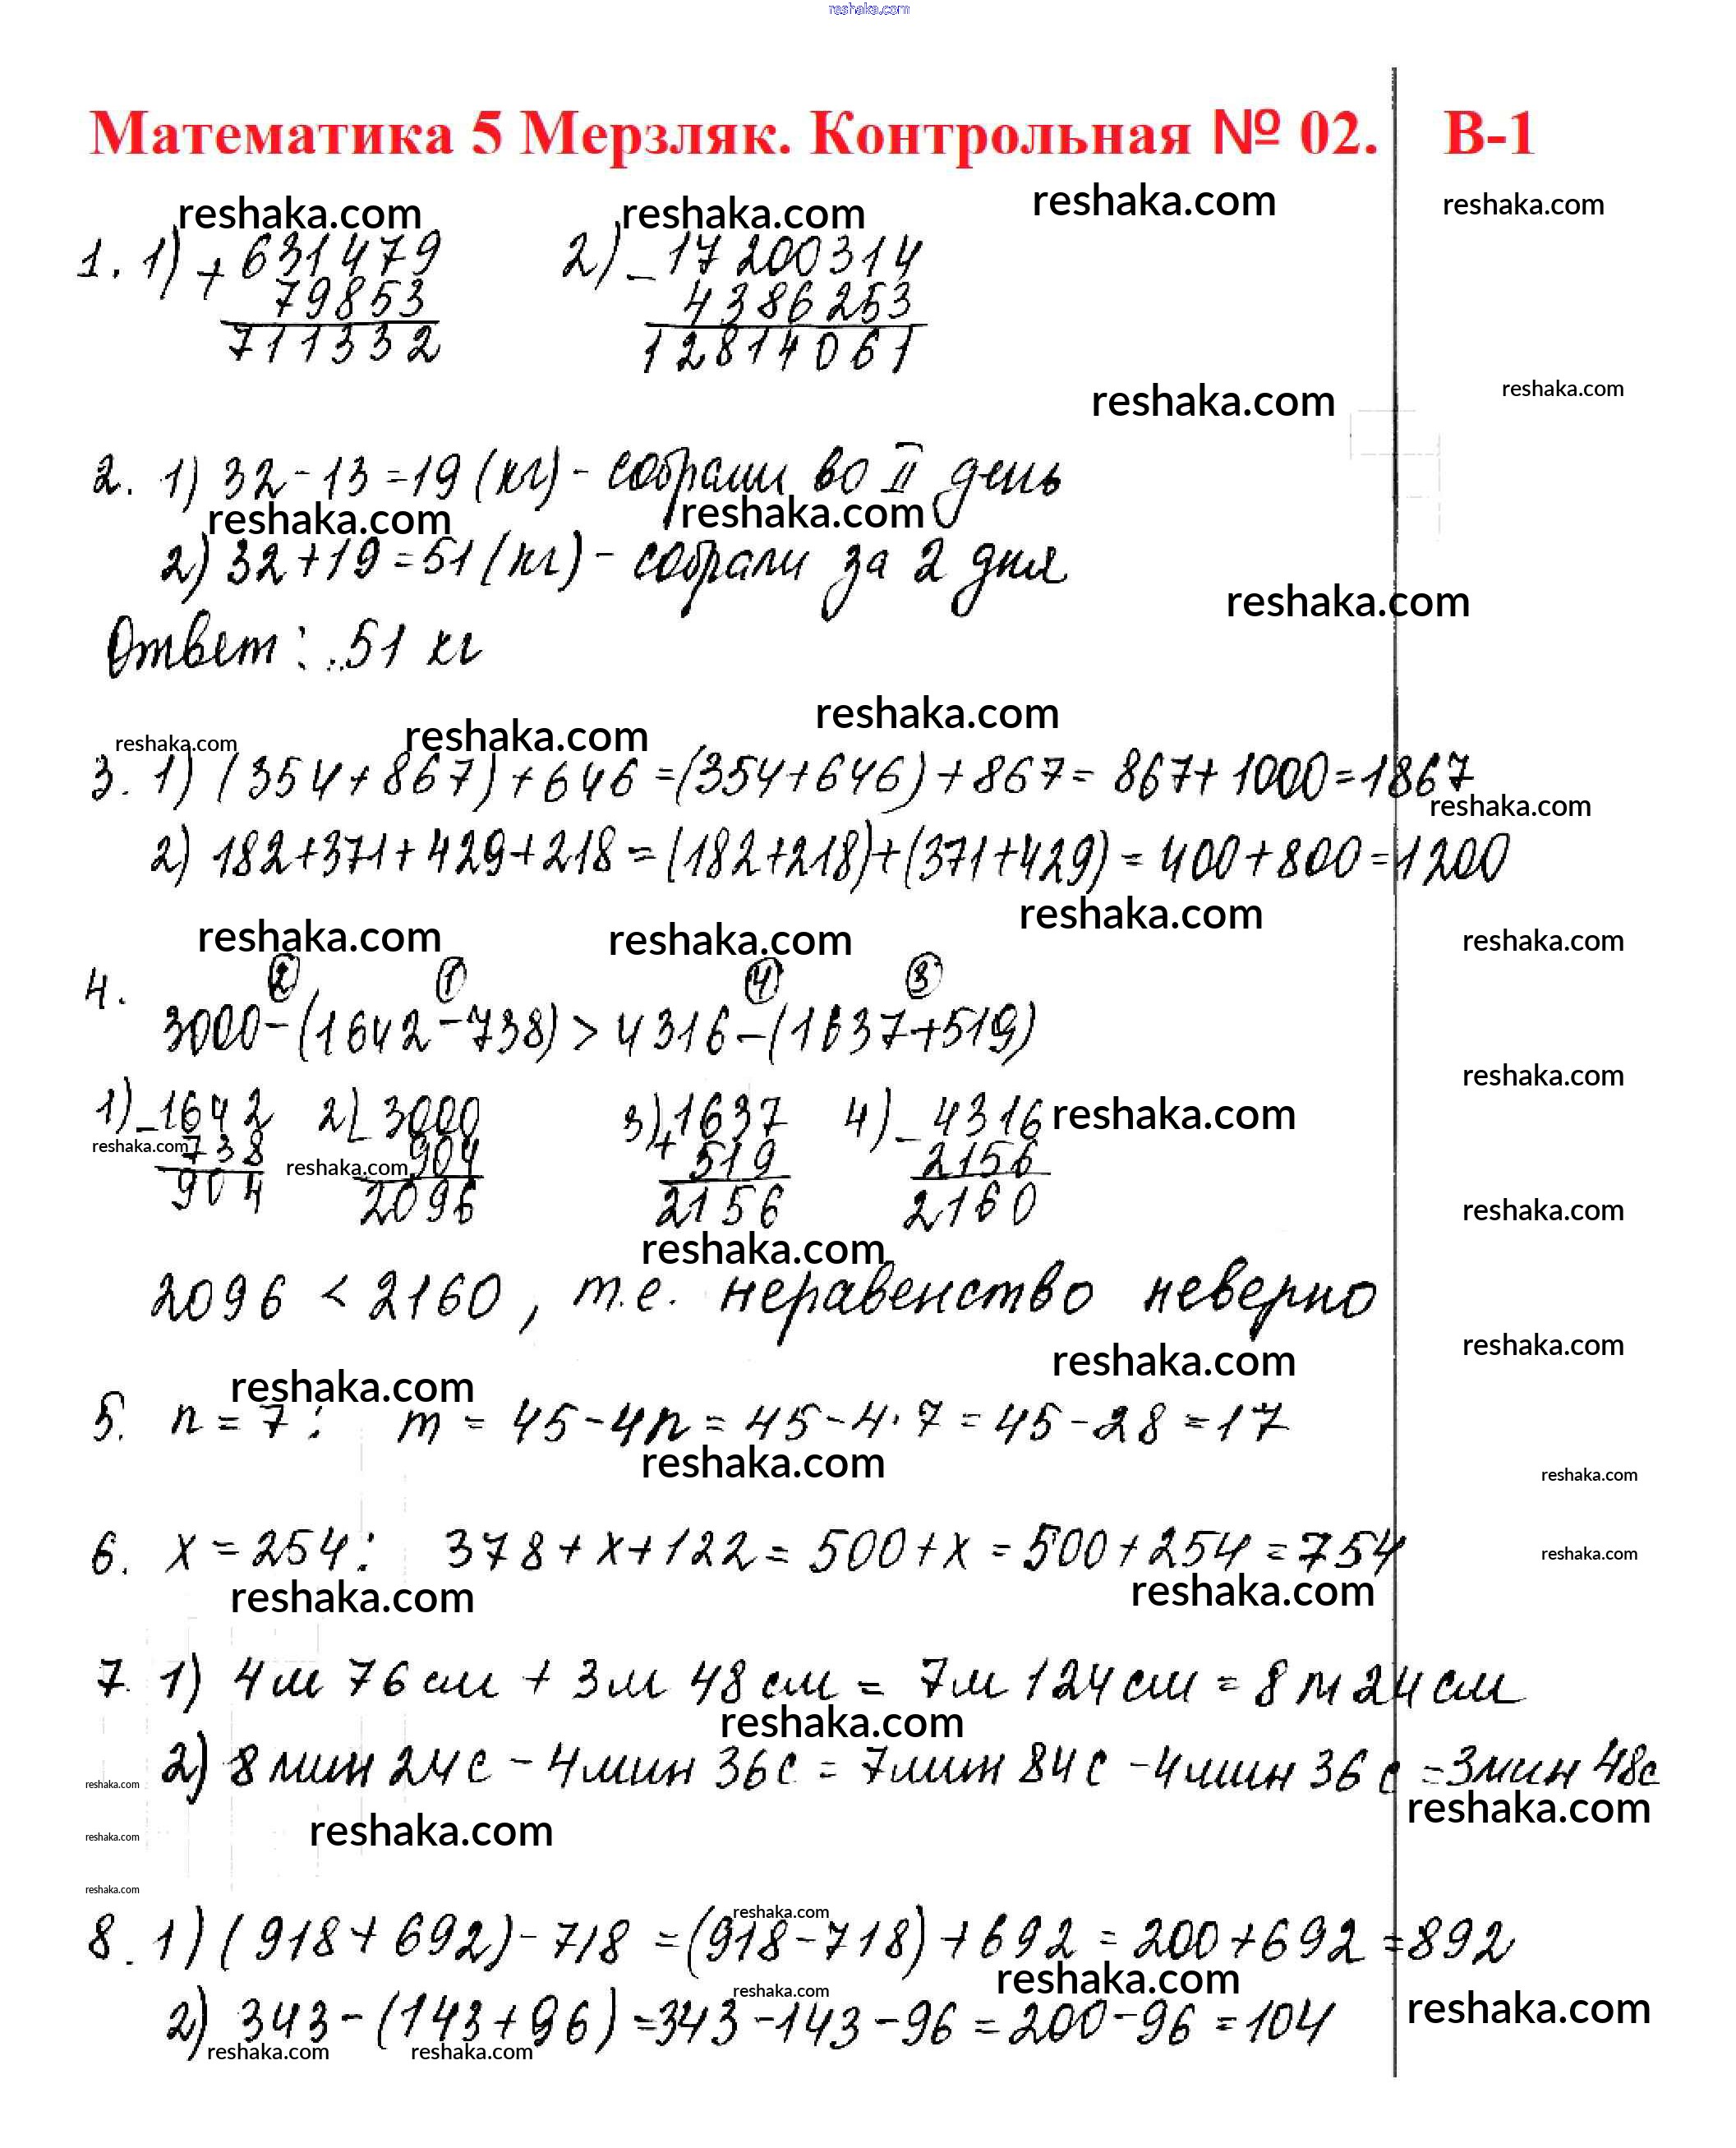 reshaka.com
Математика 5 Мерзляк. Контрольная № 02. В-1
reshaka.com reshaka.com reshaka.com reshaka.com
1. 1) + 631479 2) - 17200314
79853 4386253
711332 12814061
reshaka.com reshaka.com
2. 1) 32 - 13 = 19 (кг) - собрали во II день
reshaka.com reshaka.com
2) 32 + 19 = 51 (кг) - собрали за 2 дня
reshaka.com
Ответ: 51 кг
reshaka.com reshaka.com reshaka.com
3. 1) (354 + 867) + 646 = (354 + 646) + 867 = 867 + 1000 = 1867
reshaka.com
2) 182 + 371 + 429 + 218 = (182 + 218) + (371 + 429) = 400 + 800 = 1200
reshaka.com
reshaka.com reshaka.com reshaka.com
② ① ④ ③
4. 3000 - (1642 - 738) > 4316 - (1637 + 519)
reshaka.com
1) - 1642 2) - 3000 3) + 1637 4) - 4316 reshaka.com
reshaka.com 738 904 519 2156
reshaka.com
904 2096 2156 2160
reshaka.com
reshaka.com
2096 < 2160, т.е. неравенство неверно
reshaka.com
reshaka.com reshaka.com
5. n = 7: m = 45 - 4n = 45 - 4 · 7 = 45 - 28 = 17
reshaka.com reshaka.com
6. x = 254: 378 + x + 122 = 500 + x = 500 + 254 = 754
reshaka.com
reshaka.com reshaka.com
7. 1) 4 м 76 см + 3 м 48 см = 7 м 124 см = 8 м 24 см
reshaka.com
2) 8 мин 24 с - 4 мин 36 с = 7 мин 84 с - 4 мин 36 с = 3 мин 48 с
reshaka.com
reshaka.com reshaka.com
reshaka.com
reshaka.com
reshaka.com
8. 1) (918 + 692) - 718 = (918 - 718) + 692 = 200 + 692 = 892
reshaka.com reshaka.com
2) 343 - (143 + 96) = 343 - 143 - 96 = 200 - 96 = 104
reshaka.com
reshaka.com reshaka.com